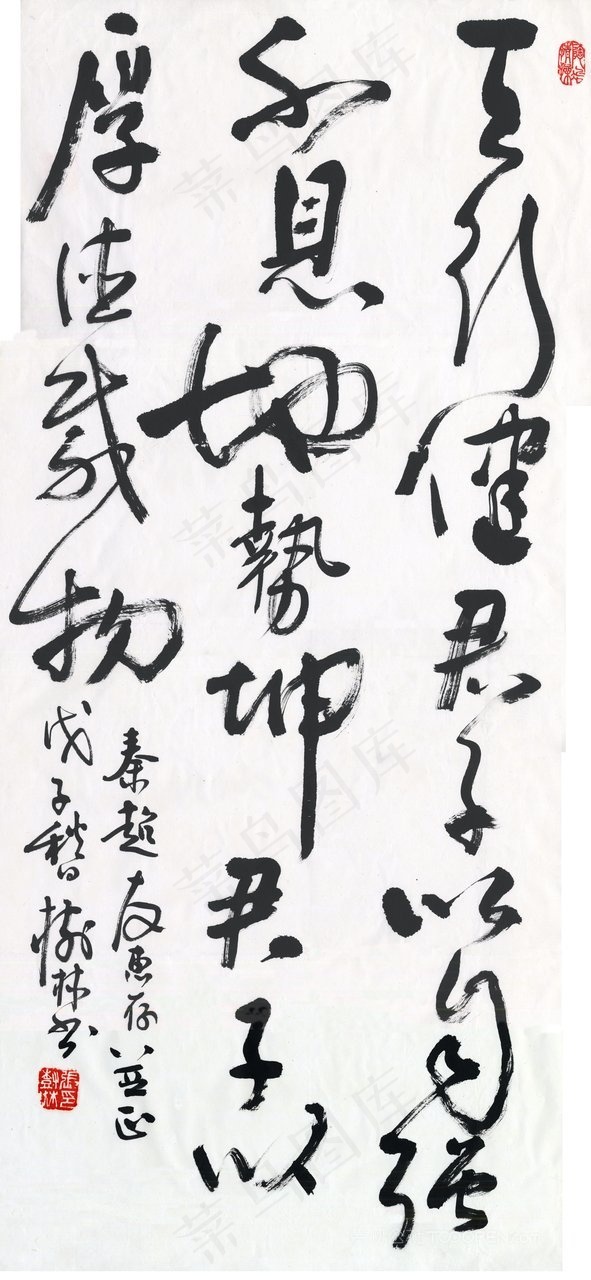 天行健君子以自强
不息地勢坤君子以
厚德载物
秦超友惠存並正
戊子秋日树林书
張印樹林
菜鸟图库